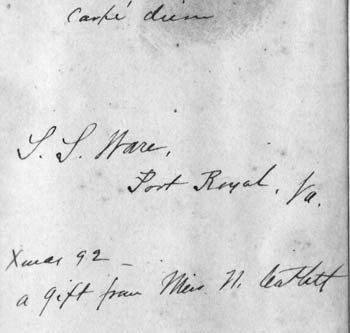 Carpé diem
S. S. Ware,
Port Royal, Va.
Xmas 92 —
a gift from Miss N. Catlett